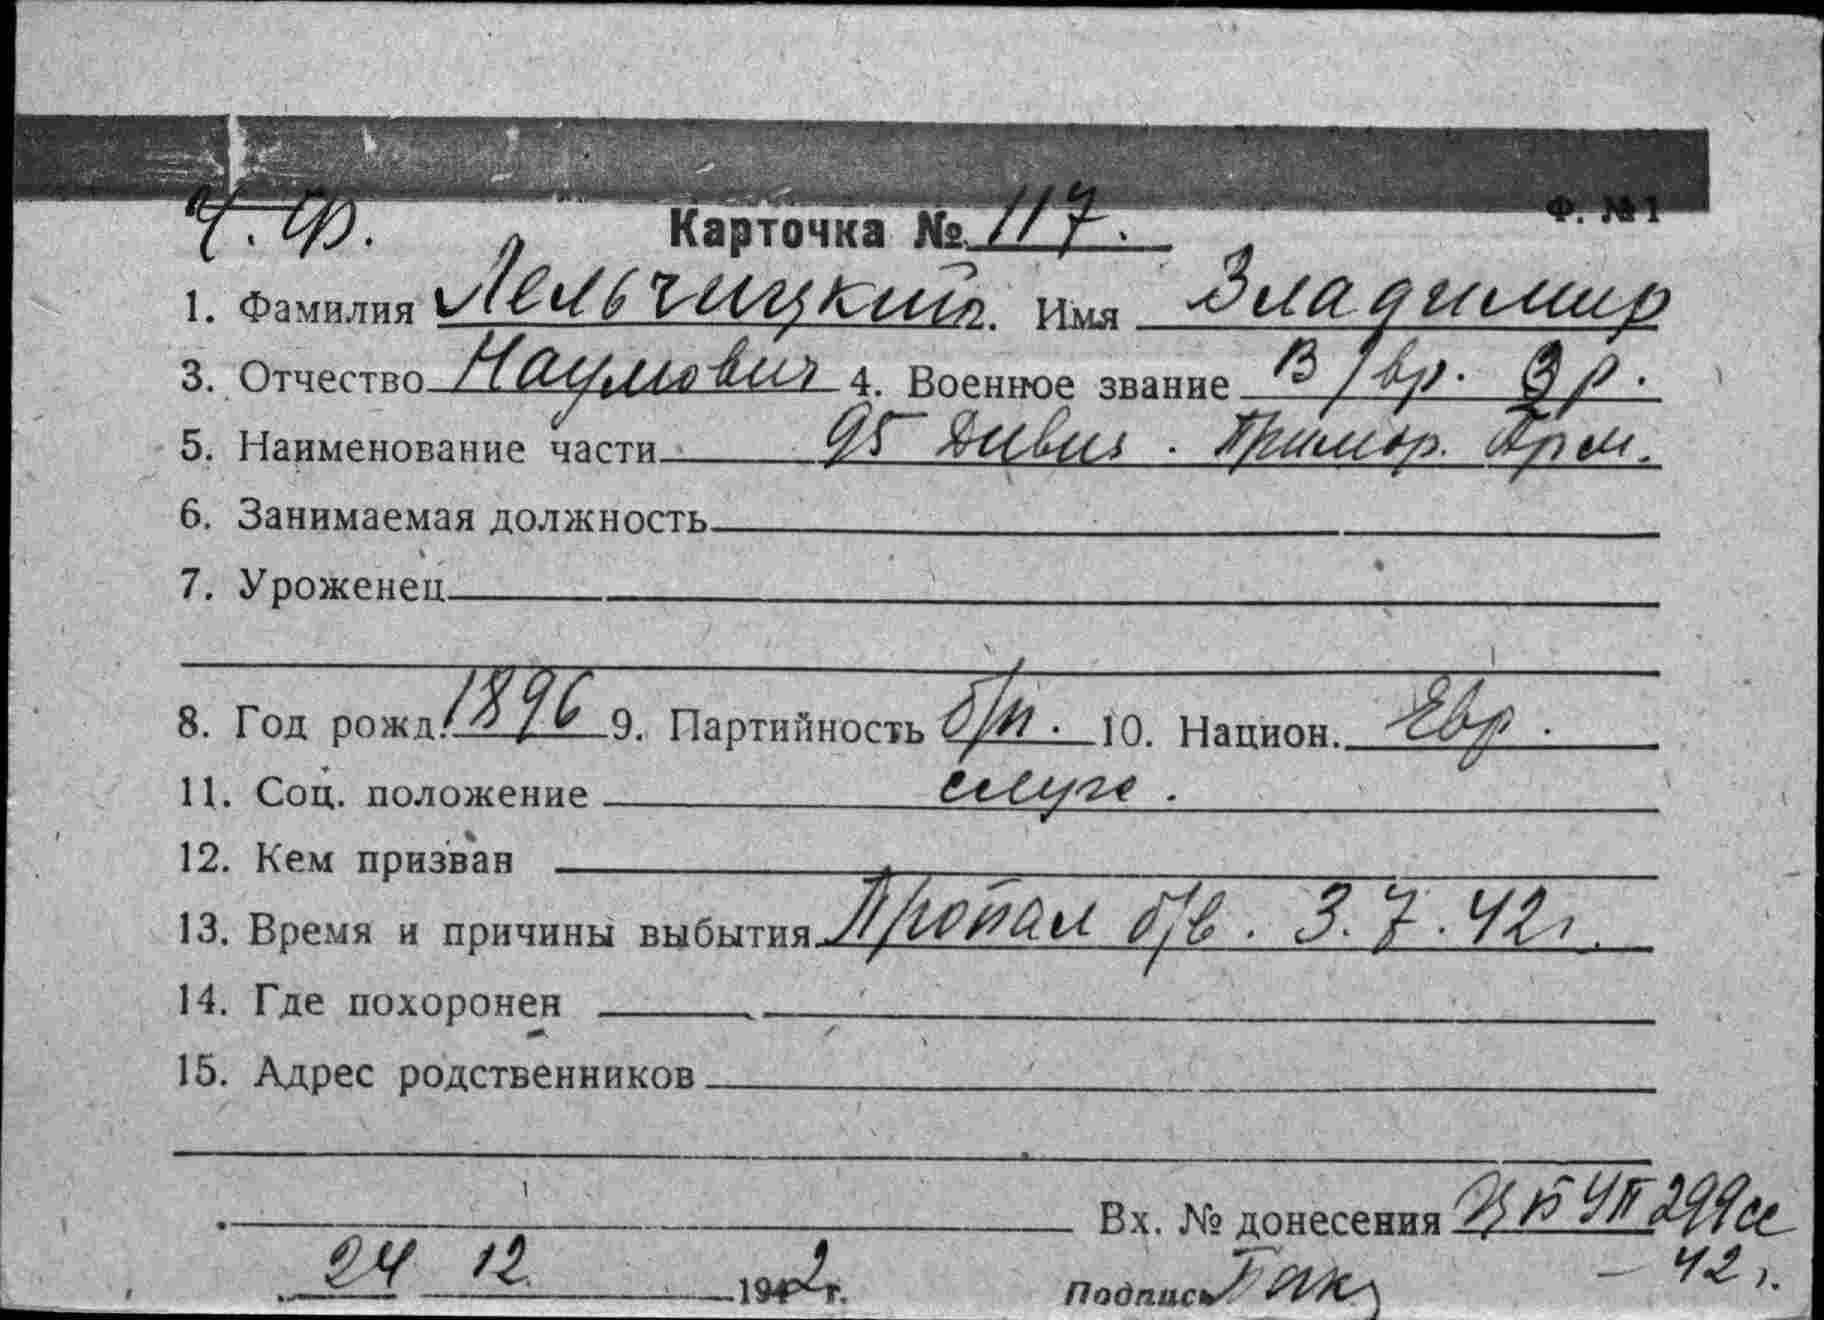 Ч.Ф.
Ф. №1
Карточка № 117.
1. Фамилия Лельчицкий. Имя Владимир
3. Отчество Наумович 4. Военное звание В/вр. 3 р.
5. Наименование части 95 Дивиз. Примор. Арм.
6. Занимаемая должность
7. Уроженец
8. Год рожд. 1896 9. Партийность б/п. 10. Национ. Евр.
11. Соц. положение служ.
12. Кем призван
13. Время и причины выбытия Пропал б/в. 3.7.42г.
14. Где похоронен
15. Адрес родственников
Вх. № донесения ЦБ УП 299сс
– 42 г.
24 12 1942г. Подпись